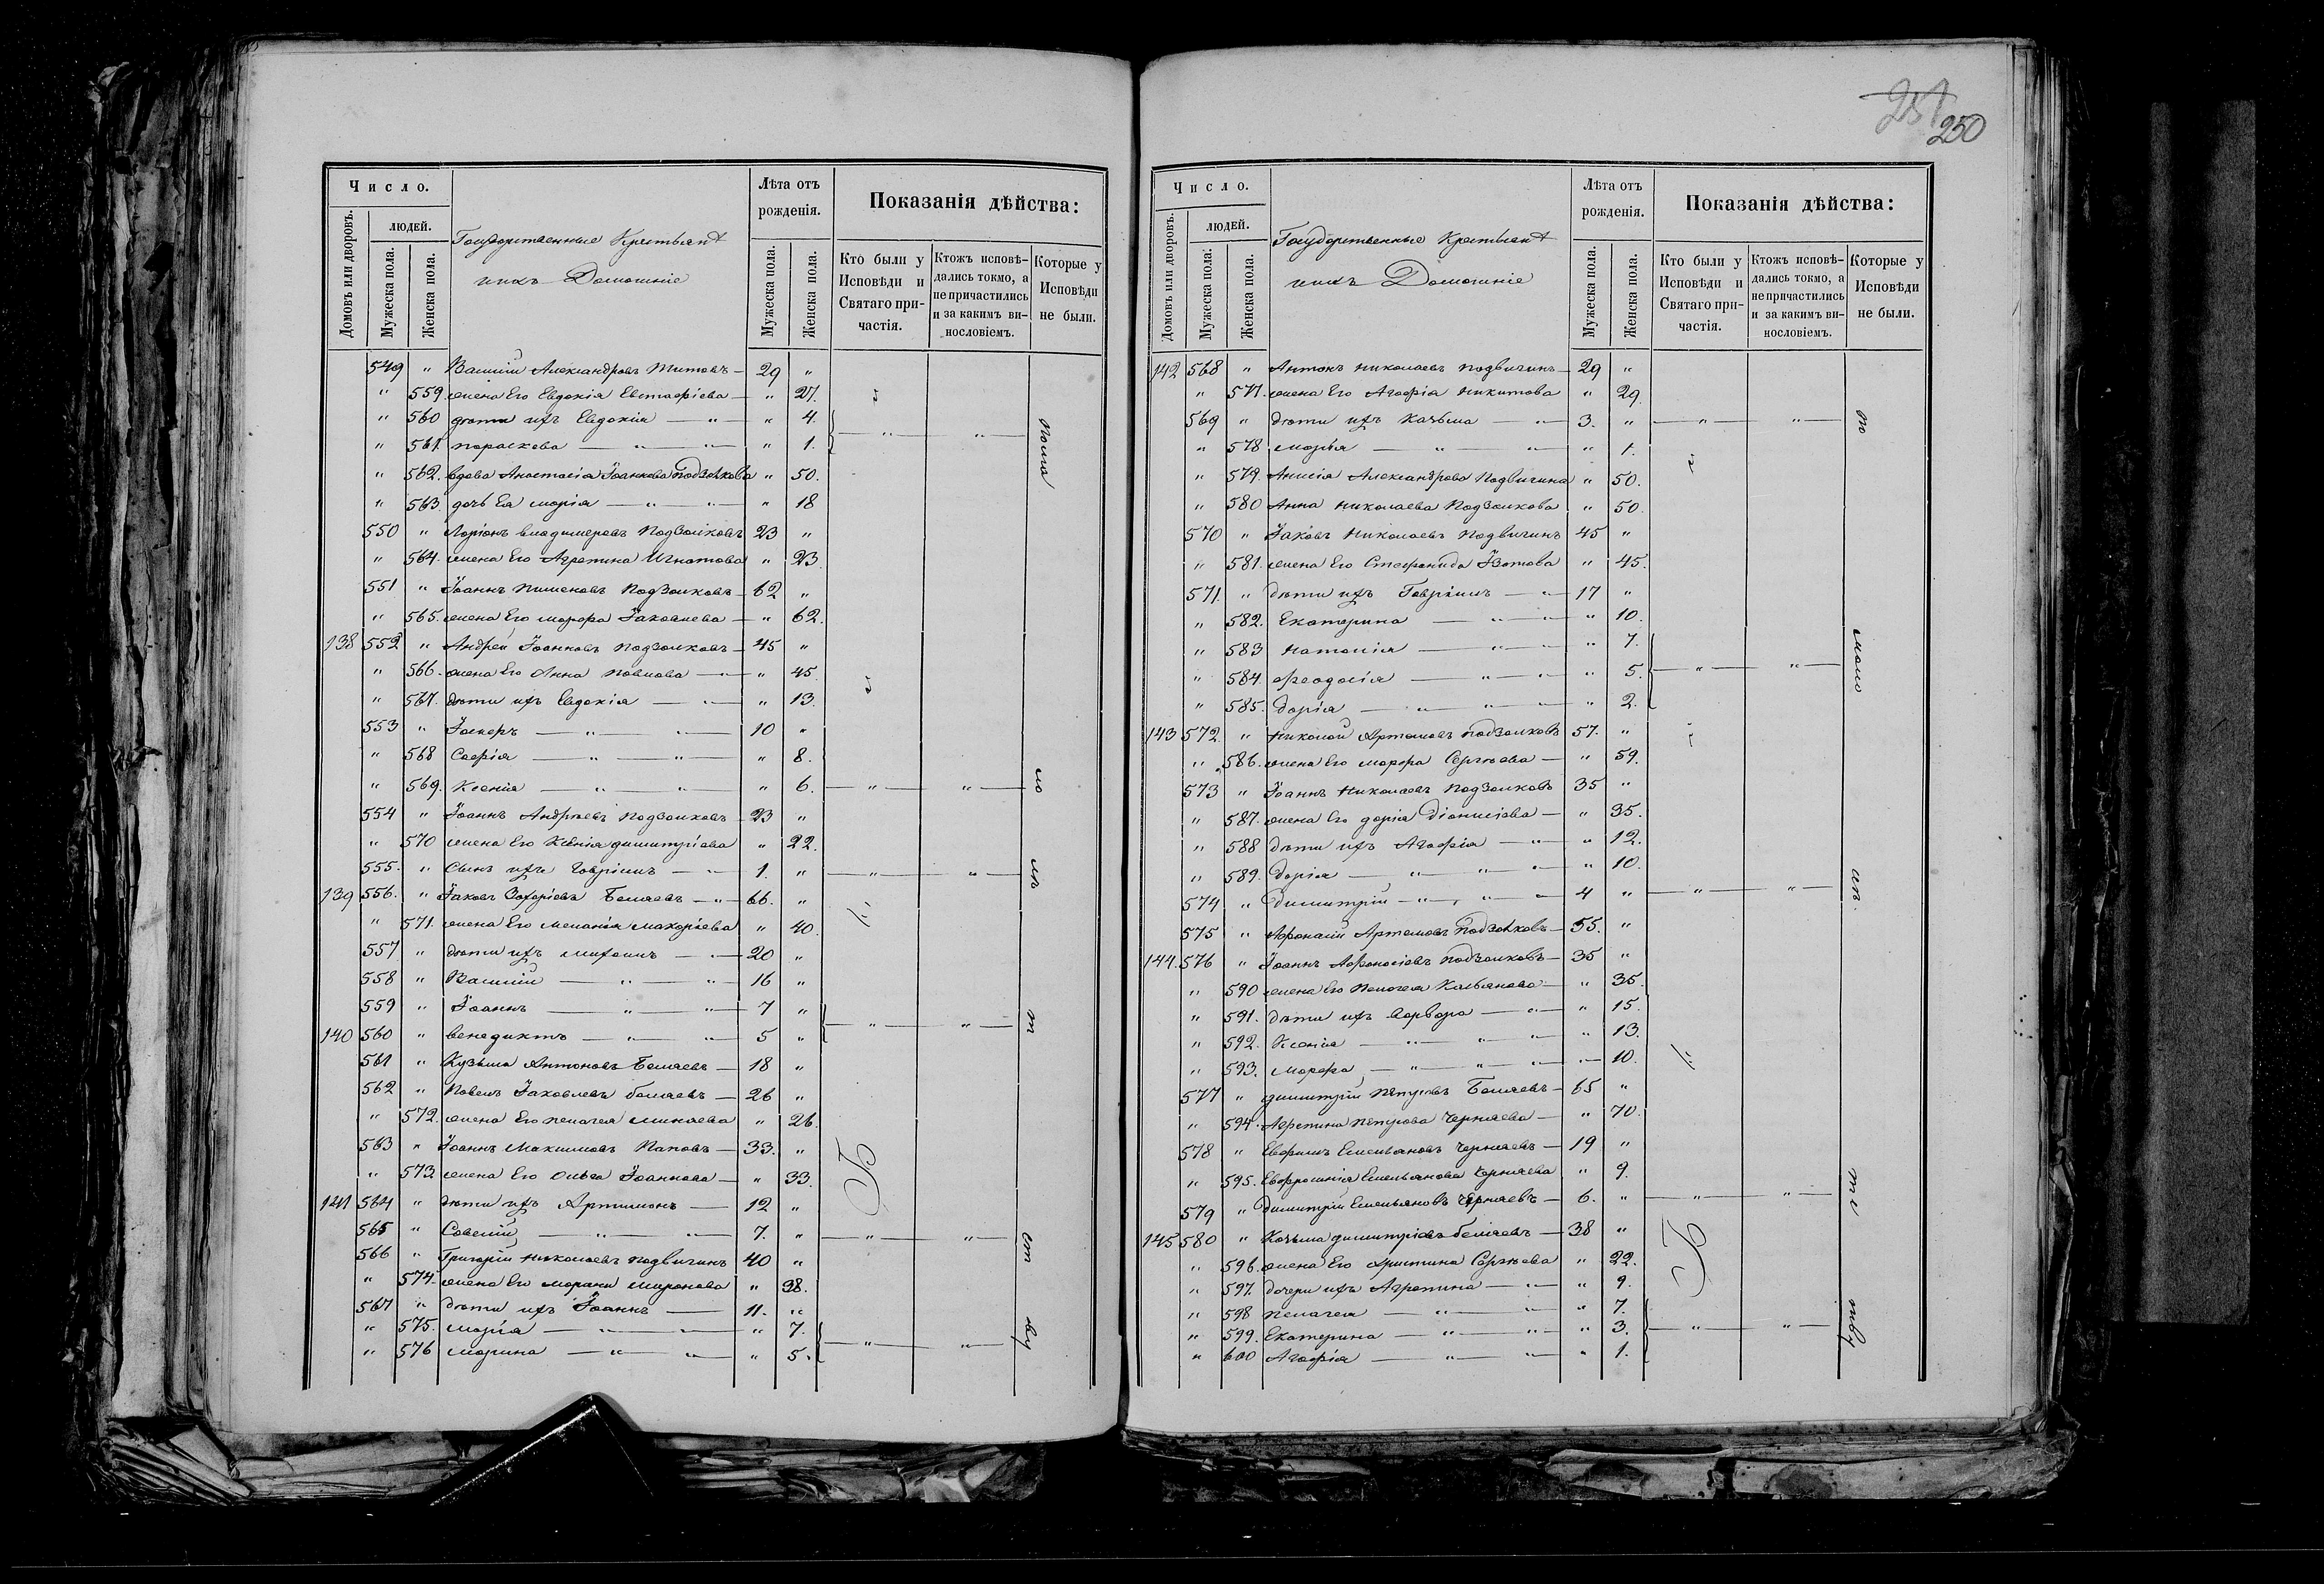 251
250
Число.
Лѣта отъ рожденія.
Показанія дѣйства:
Домовъ или дворовъ.
людей.
Мужеска пола.
Женска пола.
Государственные Крестьяне
и ихъ Домашніе
Мужеска пола.
Женска пола.
Кто были у Исповѣди и Святаго причастія.
Ктожъ исповѣдались токмо, а не причастились и за какимъ винословіемъ.
Которые у Исповѣди не были.
549 " Василій Александровъ Титовъ — 29 "
" 559 жена Его Евдокія Евстафіева — " 27.
" 560 дѣти ихъ Евдокія — " — " 4.
" 561. Параскева — " — " — " 1.
" 562. вдова Анастасія Іоаннова Подзолкова " 50.
" 563. дочь Ея Марія — " — " — " 18
550 " Ларіонъ Владимеровъ Подзолковъ 23 "
" 564. жена Его Агрепина Игнатова " 23.
551 " Іоаннъ Пименовъ Подзолковъ — 62 "
" 565. жена Его Марфа Іаковлева — " 62.
138 552 " Андрей Іоанновъ Подзолковъ — 45 "
" 566. жена Его Анна Павлова — " 45.
" 567. дѣти ихъ Евдокія — " — " 13.
553 " Іосифъ — " — " — 10 "
" 568 Софія — " — " — " 8.
" 569. Ксенія — " — " — " 6. — " — " —
554 " Іоаннъ Андрѣевъ Подзолковъ — 23 "
" 570 жена Его Ксенія Димитріева " 22.
555. " Сынъ ихъ Гавріилъ — " — 1. " — " — " —
139 556. " Іаковъ Захаріевъ Беляевъ — " — 66. "
" 571. жена Его Меланія Макаріева " 40.
557 " дѣти ихъ Михаилъ — " — 20 "
558 " Василій — " — " — 16 "
559 " Іоаннъ — " — " — 7 "
140 560 " Венедиктъ — " — " — 5 " — " — " —
561 " Кузьма Антоновъ Беляевъ — 18 "
562 " Павелъ Іаковлевъ Беляевъ — 26 "
" 572. жена Его Пелагея Минаева " 26.
563 " Іоаннъ Максимовъ Паповъ — 33. "
" 573 жена Его Ольга Іоаннова — " 33.
141 564 " дѣти ихъ Артимонъ — 12 "
565 " Савелій — " — " — 7. " — " — " —
566 " Григорій Николаевъ Подвигинъ 40 "
" 574. жена Его Миронова " 38.
567 " дѣти ихъ Іоаннъ — 11. "
" 575. Марія — " — " — " 7.
" 576 Марина — " — " — " 5. — " — " —
по мало лѣ т ст ву
Число.
Лѣта отъ рожденія.
Показанія дѣйства:
Домовъ или дворовъ.
людей.
Мужеска пола.
Женска пола.
Государственные Крестьяне
и ихъ Домашніе
Мужеска пола.
Женска пола.
Кто были у Исповѣди и Святаго причастія.
Ктожъ исповѣдались токмо, а не причастились и за какимъ винословіемъ.
Которые у Исповѣди не были.
142 568 " Антонъ Николаевъ Подвигинъ — 29 "
" 577. жена Его Агафія Никитова " 29.
569 " дѣти ихъ Казьма — " — 3. " — " — " —
" 578 Марія — " — " — " 1.
" 579. Анисія Александрова Подвигина " 50.
" 580 Анна Николаева Подзолкова " 50.
570 " Іаковъ Николаевъ Подвигинъ 45 "
" 581. жена Его Стефанида Изотова " 45.
571. " дѣти ихъ Гавріилъ — " — 17 "
" 582. Екатерина — " — " — " 10.
" 583 Наталія — " — " — " 7.
" 584. Феодосія — " — " — " 5. — " — " —
" 585. Дарія — " — " — " 2.
143 572. " Николай Артемовъ Подзолковъ 57. "
" 586. жена Его Марфа Сергѣева — " 59.
573 " Іоаннъ Николаевъ Подзолковъ 35 "
" 587. жена Его Дарія Діонисіева — " 35.
" 588 дѣти ихъ Агафія — " — " 12.
" 589. Дарія — " — " — " 10.
574 " Димитрій — " — " — 4 " — " — " —
575 " Афонасій Артемовъ Подзолковъ — 55. "
144. 576 " Іоаннъ Афонасіевъ Подзолковъ — 35 "
" 590 жена Его Пелагея Касьянова — " 35.
" 591. дѣти ихъ Варвара — " — " 15.
" 592. Ксенія — " — " — " 13.
" 593. Марфа — " — " — " 10.
577 " Димитрій Петровъ Беляевъ — 65 "
" 594. Агрепина Петрова Черняева — " 70.
578 " Емельяновъ Черняевъ — 19 "
" 595. Евфросинія Емельянова Черняева " 9.
579 " Димитрій Емельяновъ Черняевъ — 6. " — " — " —
145 580 " Казьма Димитріевъ Беляевъ — 38 "
" 596. жена Его Христина Сергѣева " 22.
" 597. дочери ихъ Агрепина — " — " 9.
" 598 Пелагея — " — " — " 7.
" 599. Екатерина — " — " — " 3. — " — " —
" 600 Агафія — " — " — " 1.
по мало лѣ тс тву